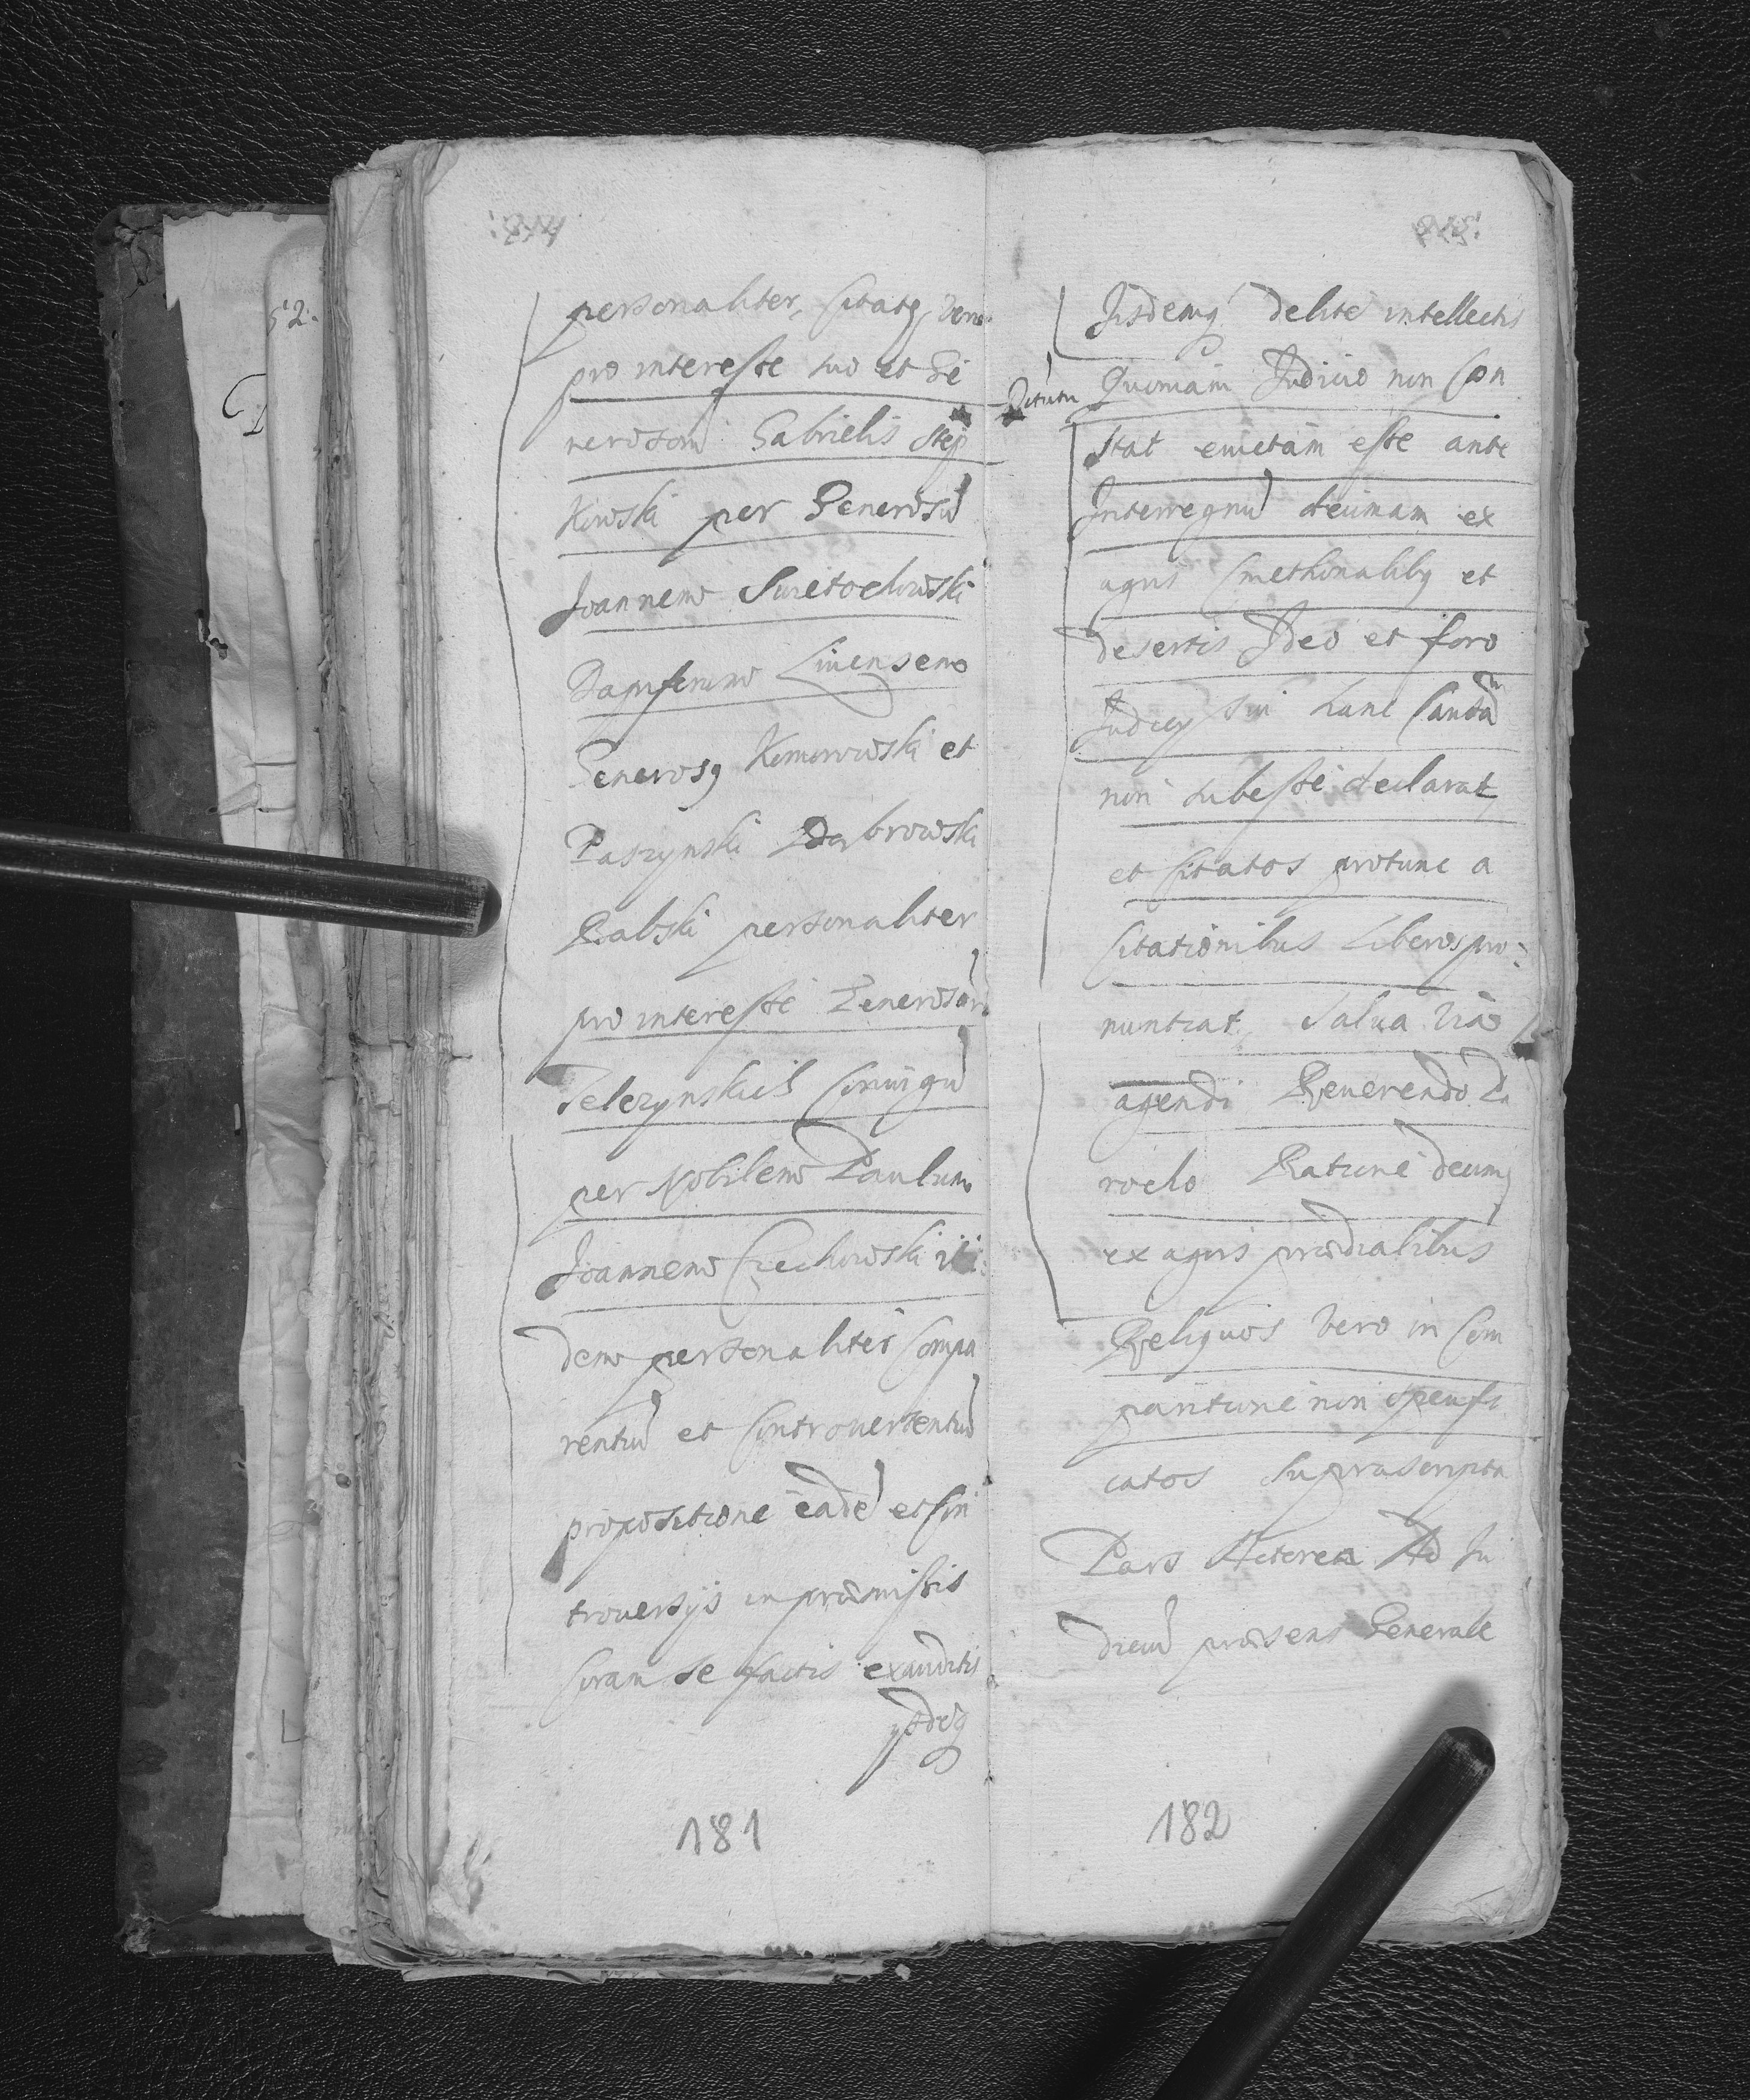 214
personaliter, Citatq, vero
pro interesse suo et Ge
nerosorū Gabrielis Step
kowski per Generosū
Joannem Swietochowski
Dapiferum Livensem
Generosq Komorowski et
Paszynski Dąbrowski
Rabski personaliter
pro interesse Generosorū
Coniugū
per Nobilem Paulum
Joannem Czechowski iti:
dem personaliter Compa
rentiū et Controuertentiū
propositione eadē et Con
trouersijs in præmissis
Coram se factis exauditis
ysdēq
181
215
Jisdemq debite intellectis
Quoniam Judicio non Con
stat euictam esse ante
Interregnū decimam ex
agris Cmethonalibq et
desertis Ideo et foro
Judicij sui hanc Causā
non subesse declarat,
et Citatos protunc a
Citationibus Liberos pro:
nuntiat, Salua via
agendi Reuerendo Pa
rocho Ratione decimę
ex agris prædialibus
Reliquos vero in Com
paritione non specifi
catos suprascripta
Pars Actorea Ad Ju
diciū præsens Generale
182
52.